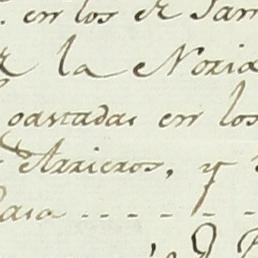 en los de
de la Noria
gastadas en los
Arrieros, y
Casa - - - - - -